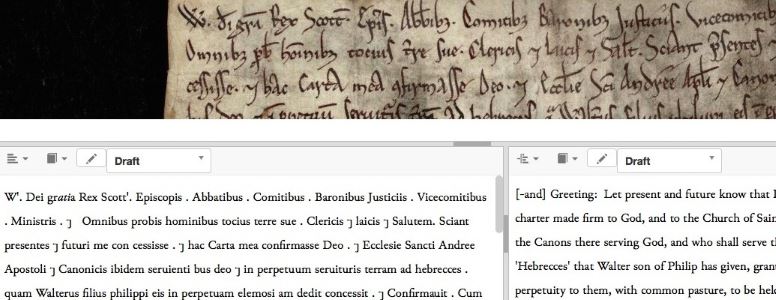 W. di gra Rex Scott. Epis. Abbibz. Comitibz Baronibz Justiciis. Vicecomitib
Omnibz pb hoibz tocius Tre sue. Clericis ⁊ laicis ⁊ Salt. Sciant psentes ⁊
cessisse. ⁊ hac Carta mea 9firmasse Deo. ⁊ Ecclie Sci Andree Apli ⁊ Canon
Draft
Draft
W'. Dei gratia Rex Scott'. Episcopis . Abbatibus . Comitibus . Baronibus Justiciis . Vicecomitibus
. Ministris . ⁊ Omnibus probis hominibus tocius terre sue . Clericis ⁊ laicis ⁊ Salutem. Sciant
presentes ⁊ futuri me con cessisse . ⁊ hac Carta mea confirmasse Deo . ⁊ Ecclesie Sancti Andree
Apostoli ⁊ Canonicis ibidem seruienti bus deo ⁊ in perpetuum seruituris terram ad hebrecces .
quam Walterus filius philippi eis in perpetuam elemosi am dedit concessit . ⁊ Confirmauit . Cum
[-and] Greeting: Let present and future know that I
charter made firm to God, and to the Church of Sain
the Canons there serving God, and who shall serve th
'Hebrecces' that Walter son of Philip has given, grant
perpetuity to them, with common pasture, to be held